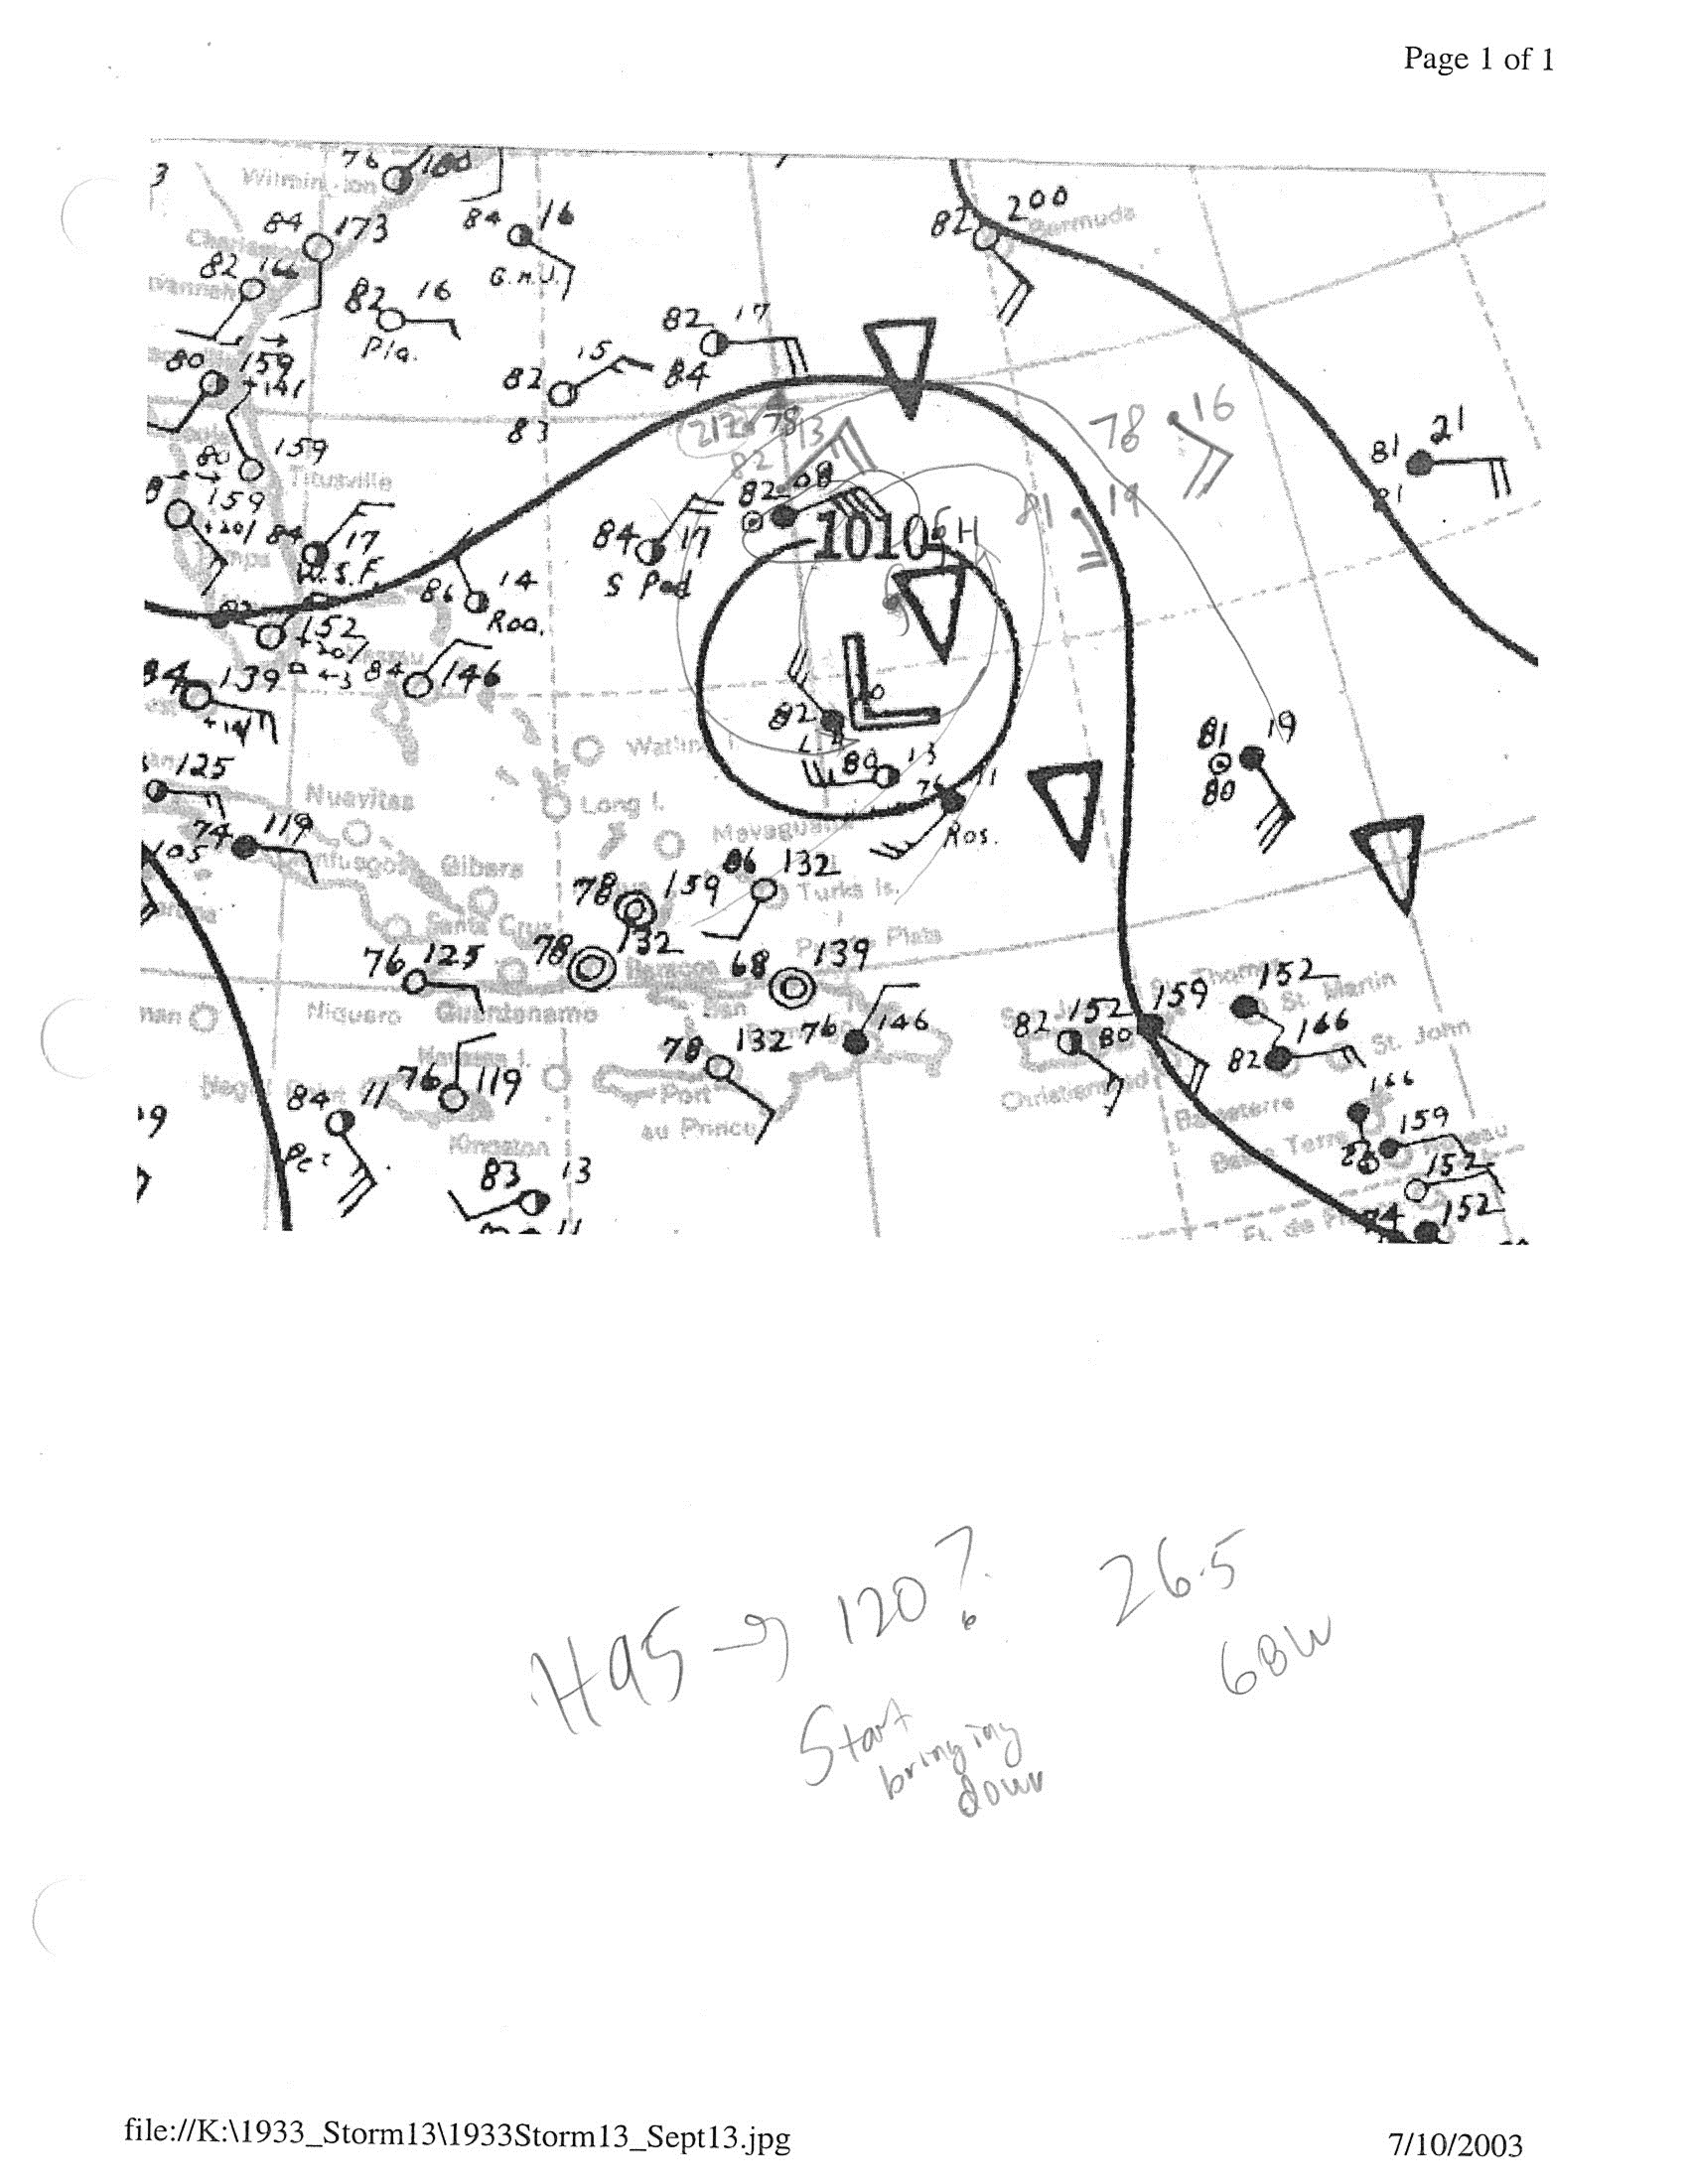 Page 1 of 1
3
76
Wilmin
84 173
84 16
G.M.J.
82 200
Bermuda
82 166
82 16
Pla.
82 17
84
80 159
+141
82 15
83
80 159
Titusville
217 78 13
82
78 16
81 21
81
159
+201
84 17
W.S.F.
84 17
S Pad
82 08
1010
H
81 19
86 14
Roa.
152
+201
84 139
84 146
82
L
80 13
Ros.
81 19
80
Long I.
125
Nuevitas
74 119
105
Gibara
86 132
Turks Is.
78 159
78 132
Santa Cruz
76 125
68 139
Plata
Niquero
Guantanamo
San
78 132
76 146
82 152
80 159
152
St. Martin
82 166
St. John
Christiansted
Basseterre
84 11
76 119
Port
au Princ
Kingston
166
159
152
83 13
74 152
H95 → 120?
26.5
68W
Start
bringing
down
file://K:\1933_Storm13\1933Storm13_Sept13.jpg
7/10/2003